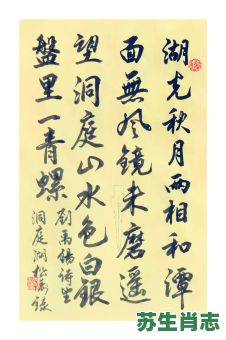 湖光秋月兩相和潭
面無風鏡未磨遥
望洞庭山水色白銀
盤里一青螺
劉禹錫詩望
洞庭湖
苏生肖志